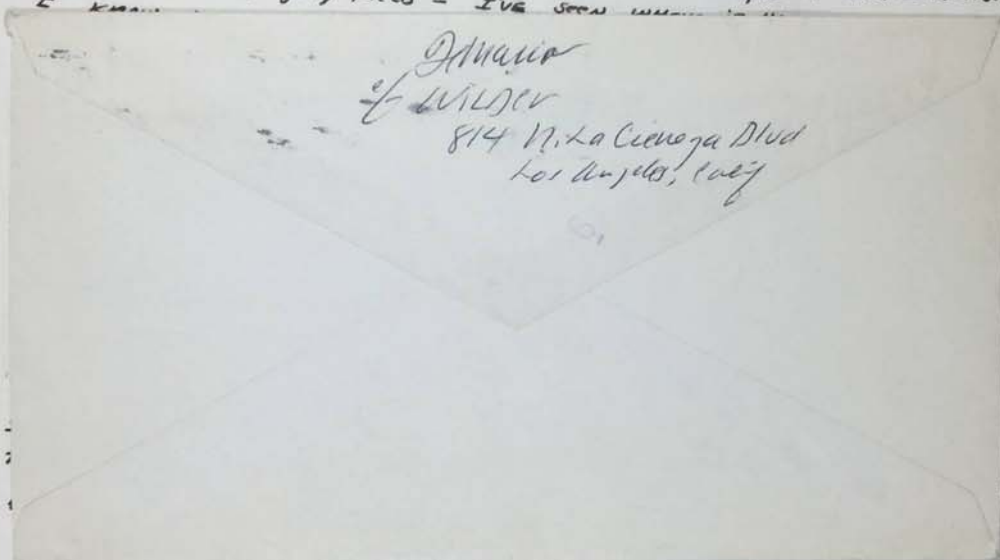 I'VE SEEN
DiMaria
c/o WILDER
814 N. La Cienega Blvd
Los Angeles, Calif